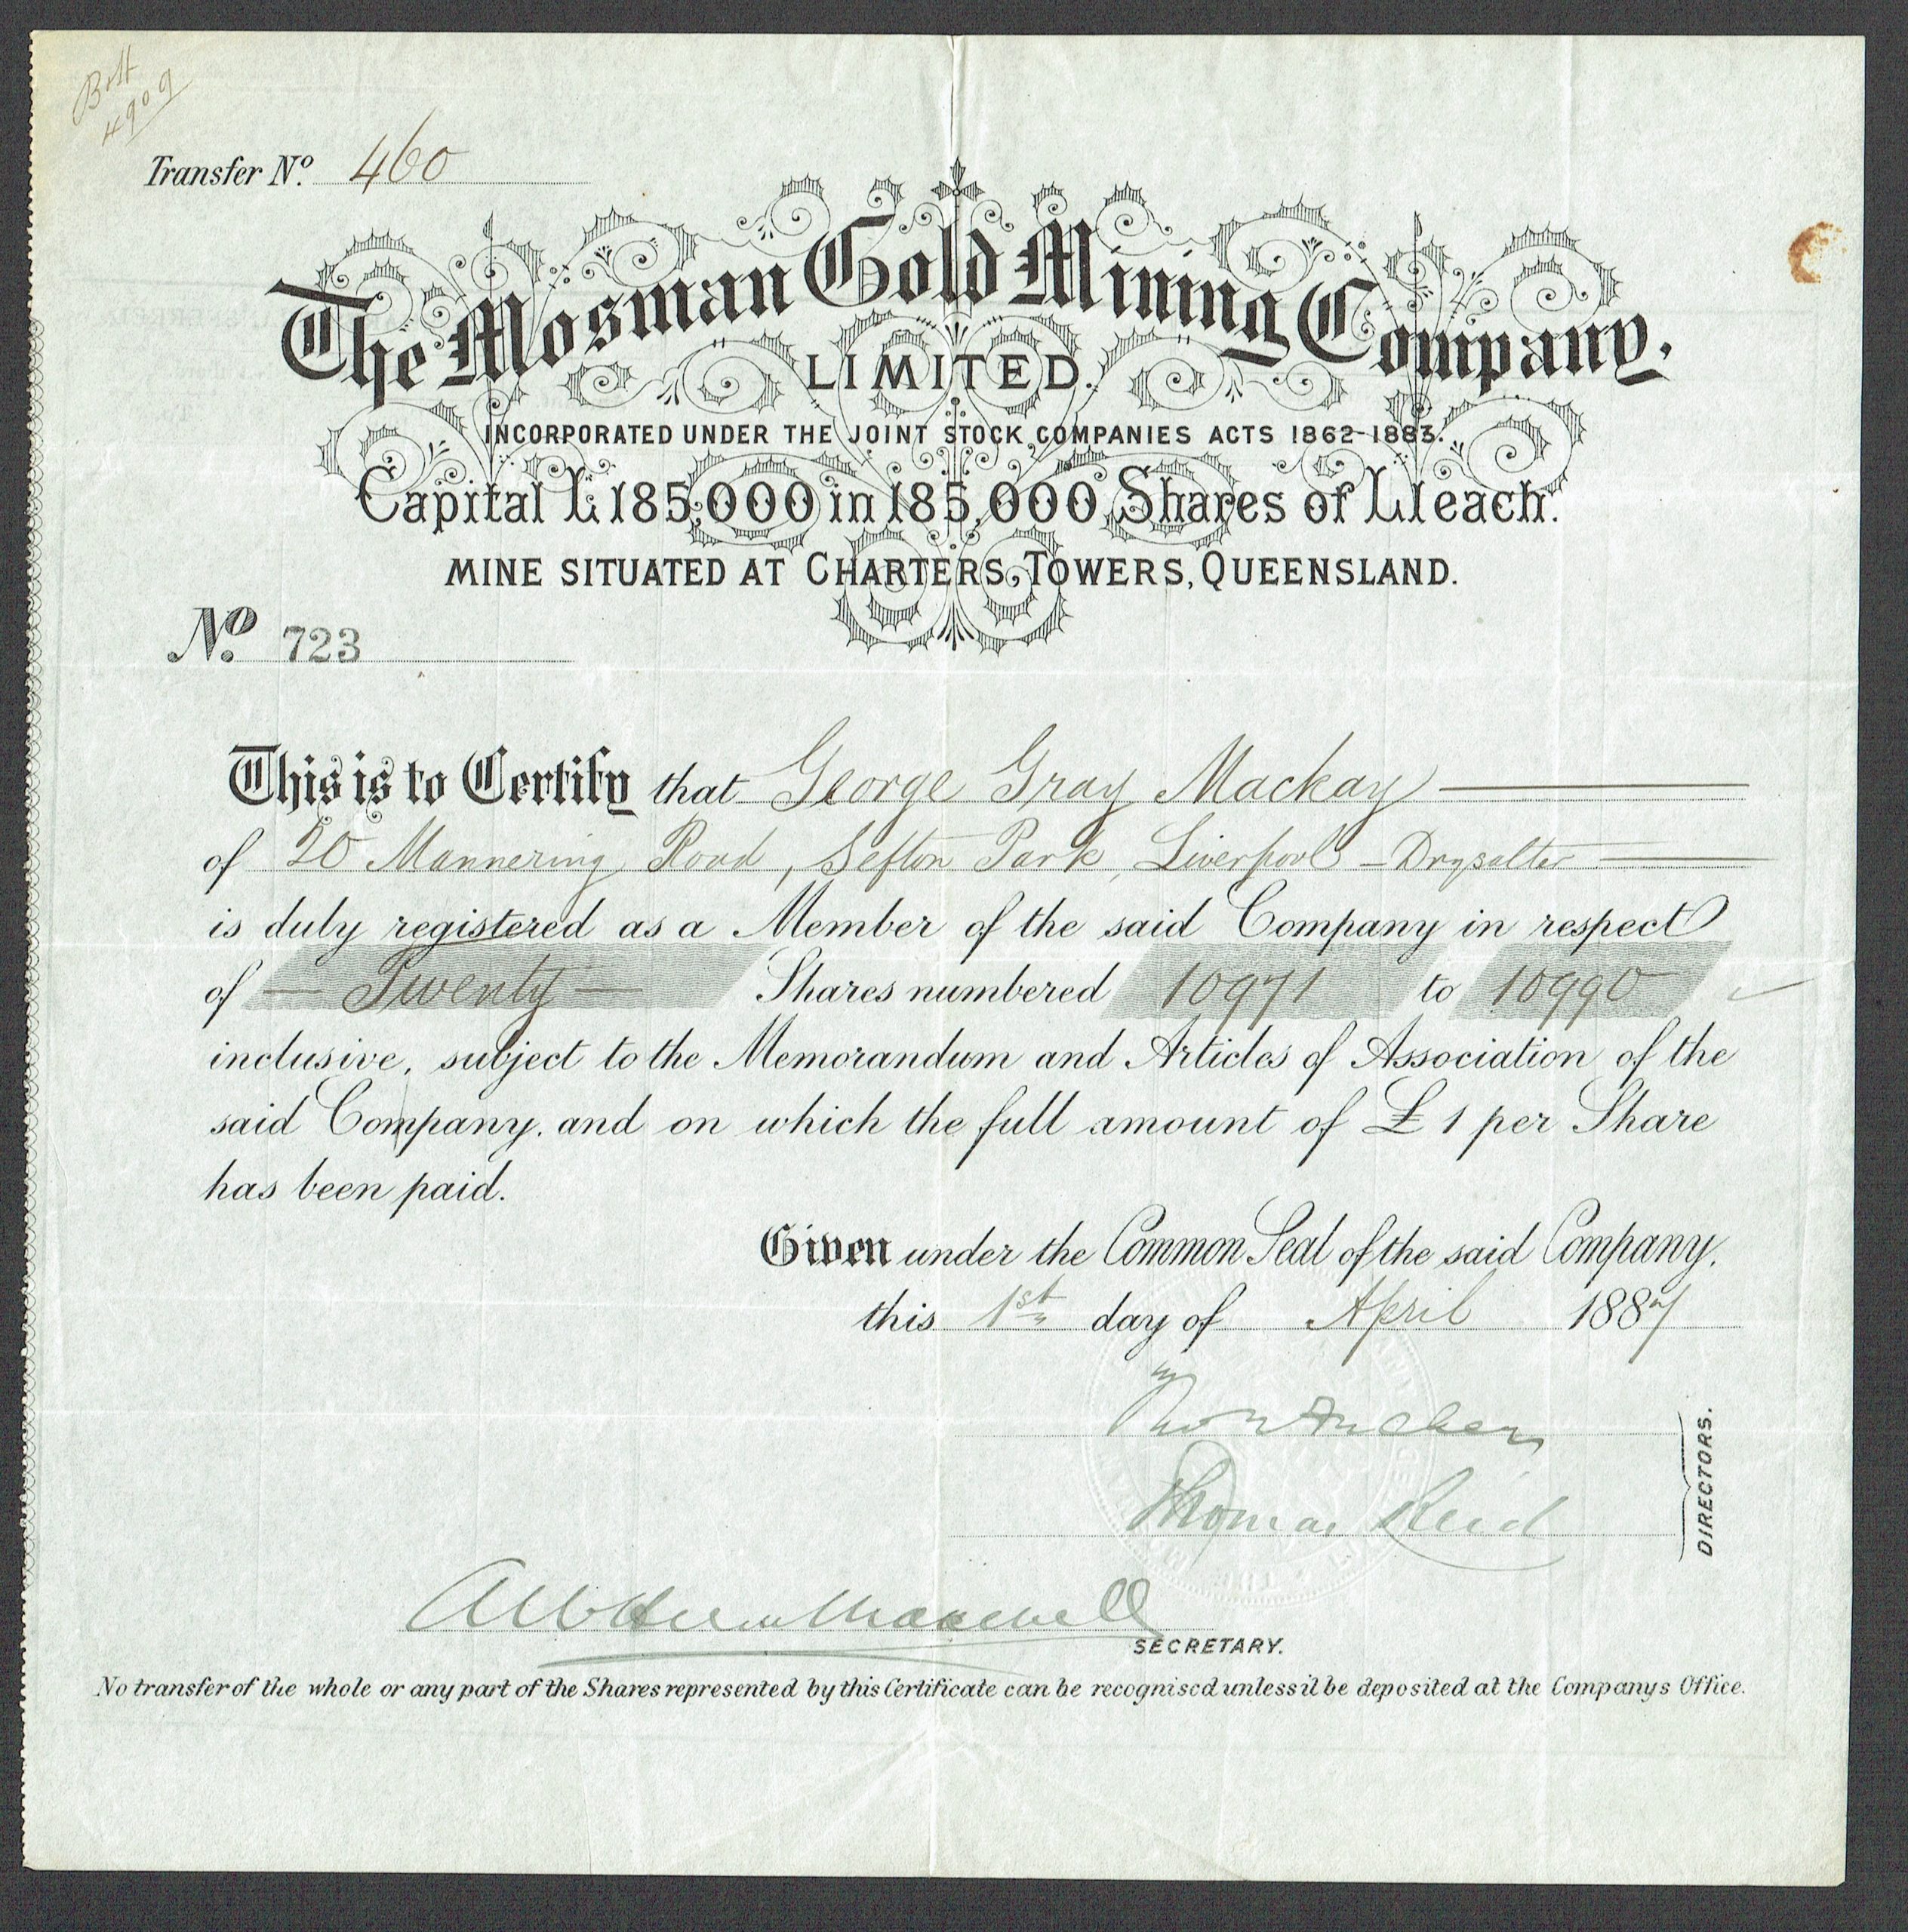 4909
Transfer No. 460
The Mosman Gold Mining Company,
LIMITED.
INCORPORATED UNDER THE JOINT STOCK COMPANIES ACTS 1862-1883.
Capital £185,000 in 185,000 Shares of £1 each.
MINE SITUATED AT CHARTERS TOWERS, QUEENSLAND.
No. 723
This is to Certify that George Gray Mackay
of 20 Mannering Road, Sefton Park, Liverpool - Drysalter
is duly registered as a Member of the said Company in respect
of - Twenty - Shares numbered 10971 to 10990
inclusive, subject to the Memorandum and Articles of Association of the
said Company, and on which the full amount of £1 per Share
has been paid.
Given under the Common Seal of the said Company,
this 1st day of April 1887
Thomas Reid
DIRECTORS.
Maxwell
SECRETARY.
No transfer of the whole or any part of the Shares represented by this Certificate can be recognised unless it be deposited at the Companys Office.